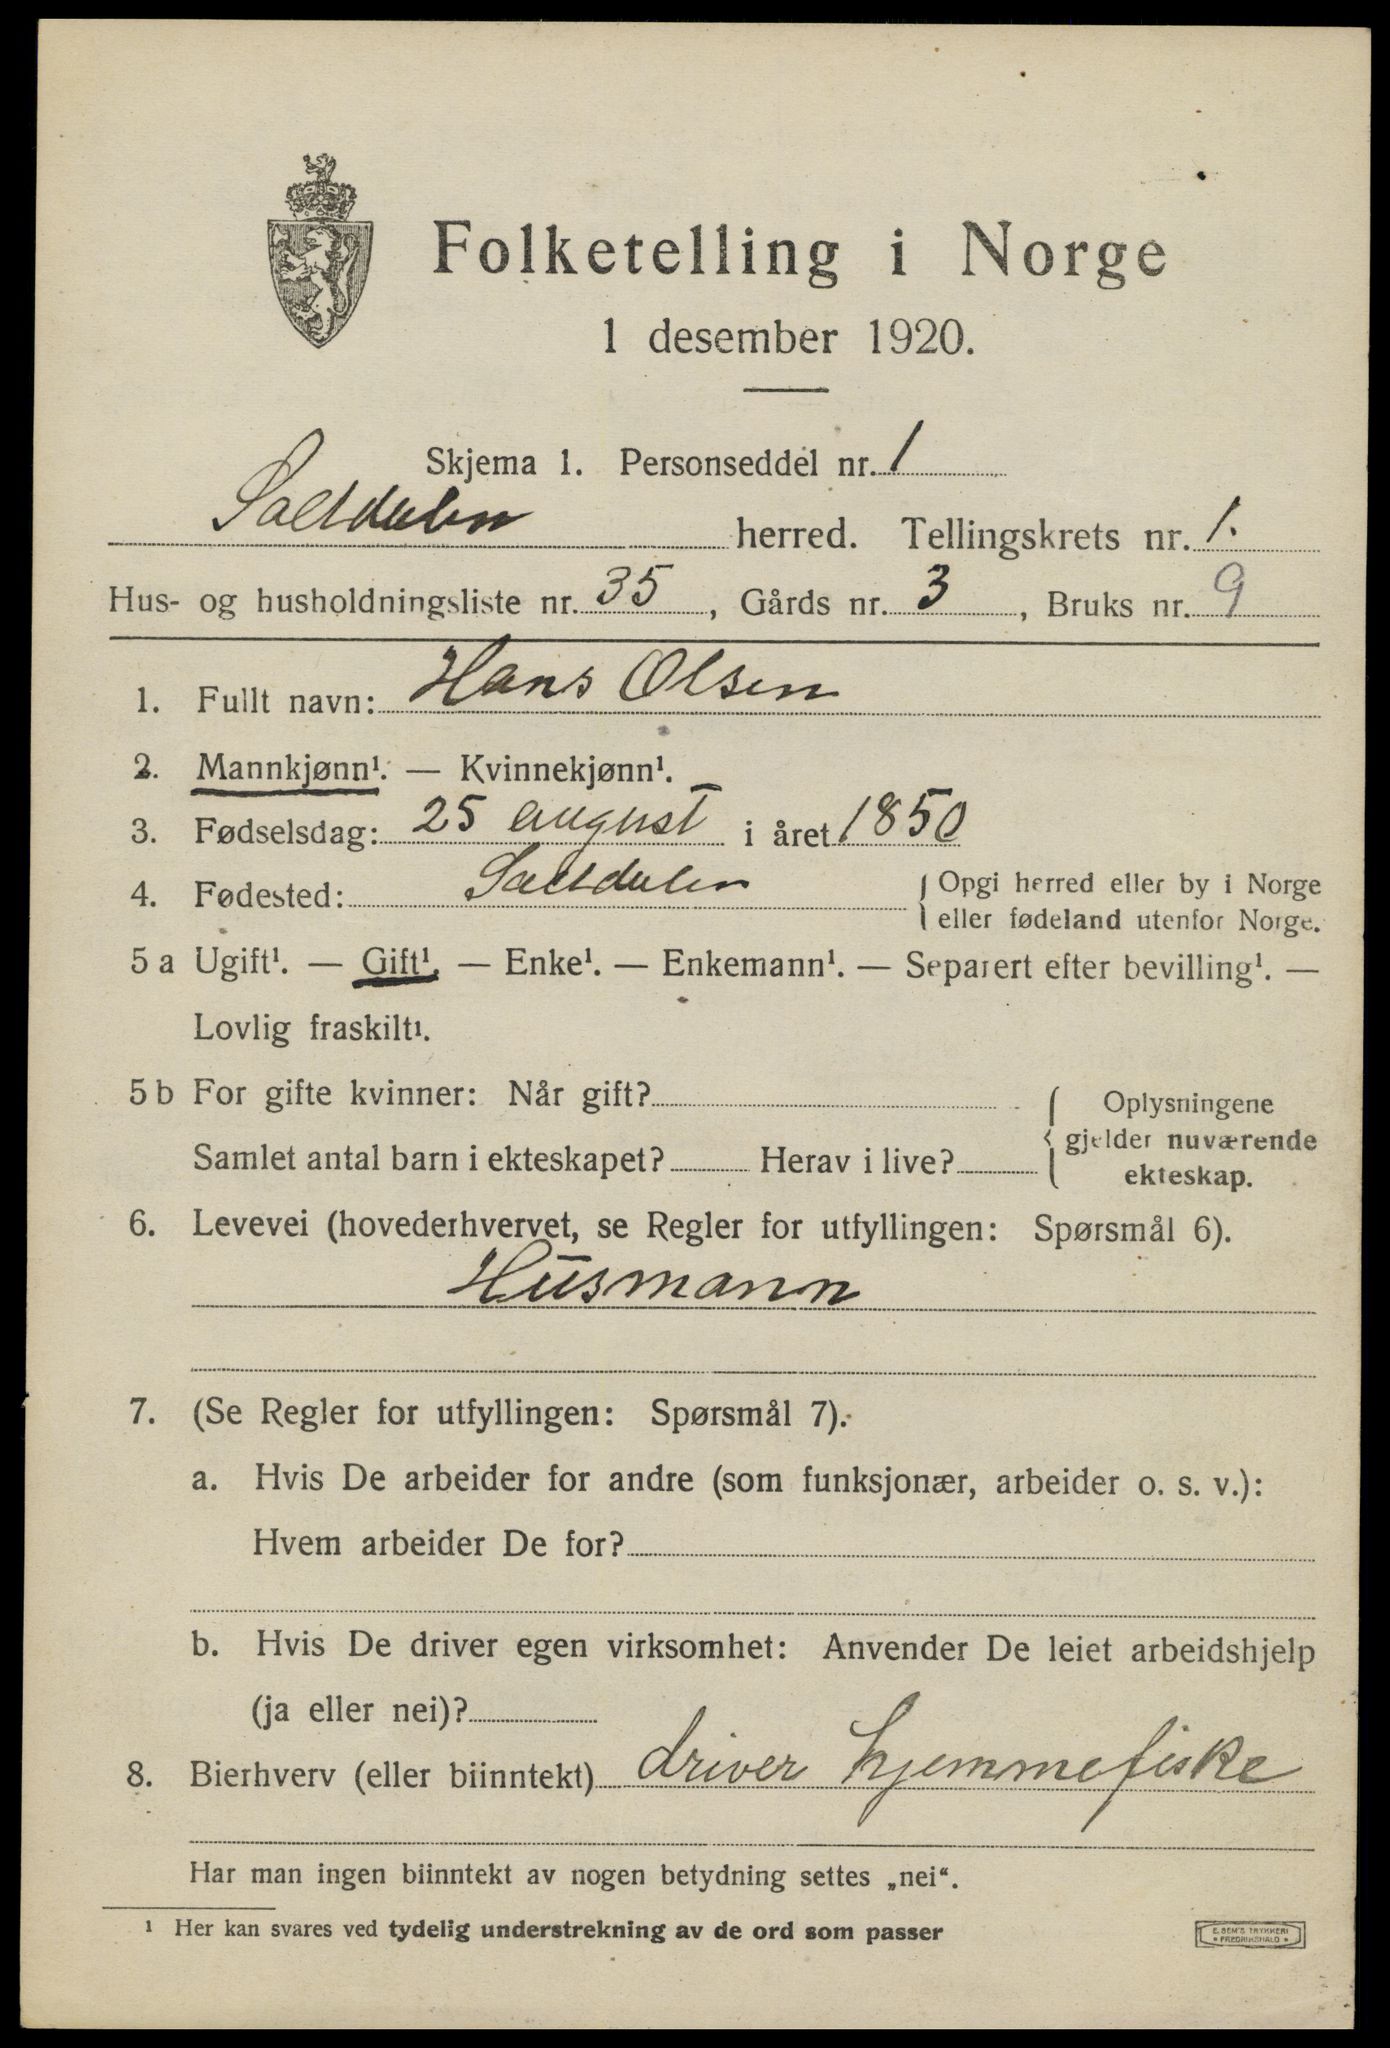 Folketelling i Norge
1 desember 1920.
Skjema 1. Personseddel nr. 1
Saltdalen herred. Tellingskrets nr. 1.
Hus- og husholdningsliste nr. 35, Gårds nr. 3, Bruks nr. 9
1. Fullt navn: Hans Olsen
2. Mannkjønn¹. — Kvinnekjønn¹.
3. Fødselsdag: 25 august i året 1850
4. Fødested: Saltdalen { Opgi herred eller by i Norge
eller fødeland utenfor Norge.
5 a Ugift¹. — Gift¹. — Enke¹. — Enkemann¹. — Separert efter bevilling¹. —
Lovlig fraskilt¹.
5 b For gifte kvinner: Når gift? { Oplysningene
gjelder nuværende
Samlet antal barn i ekteskapet? Herav i live? ekteskap.
6. Levevei (hovederhvervet, se Regler for utfyllingen: Spørsmål 6).
Husmann
7. (Se Regler for utfyllingen: Spørsmål 7).
a. Hvis De arbeider for andre (som funksjonær, arbeider o. s. v.):
Hvem arbeider De for?
b. Hvis De driver egen virksomhet: Anvender De leiet arbeidshjelp
(ja eller nei)?
8. Bierhverv (eller biinntekt) driver hjemmefiske
Har man ingen biinntekt av nogen betydning settes „nei“.
¹ Her kan svares ved tydelig understrekning av de ord som passer
E. SEM'S TRYKKERI
* FREDRIKSHALD *